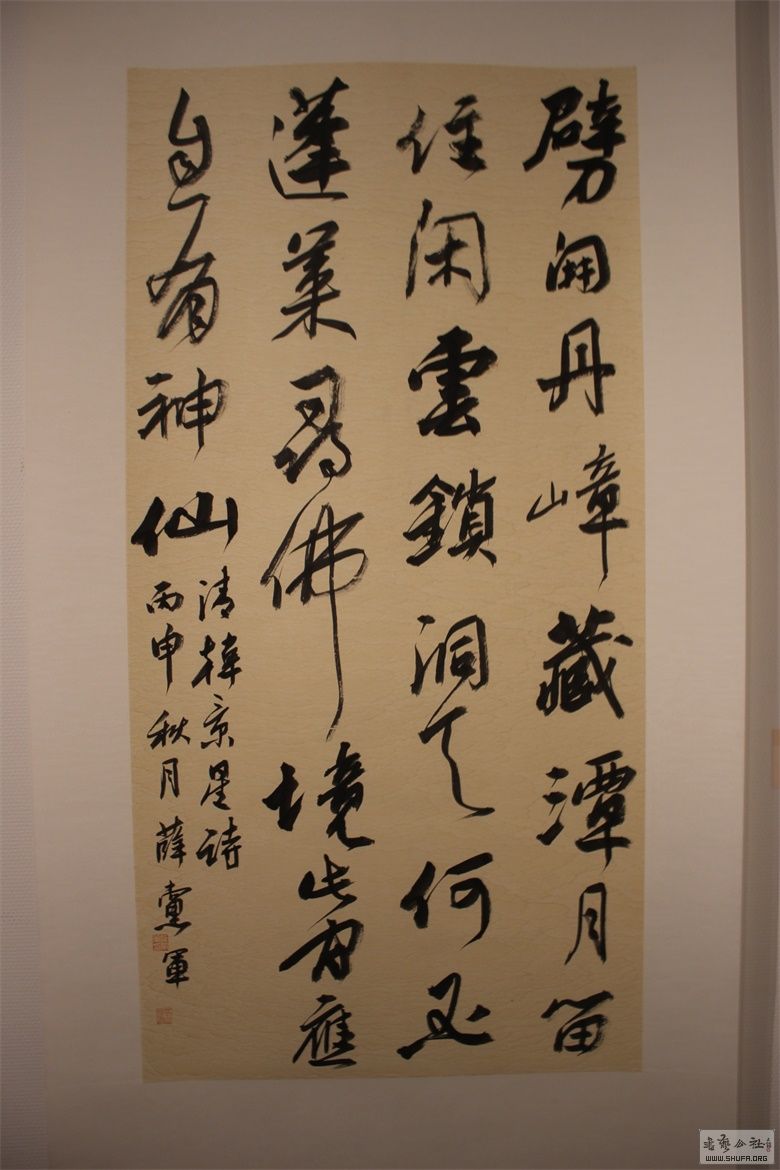 劈開丹嶂藏潭月留
住閑雲鎖洞天何必
蓬萊尋佛境此間應
自有神仙
清韓景星詩
丙申秋月薛黨軍
書藝公社
WWW.SHUFA.ORG